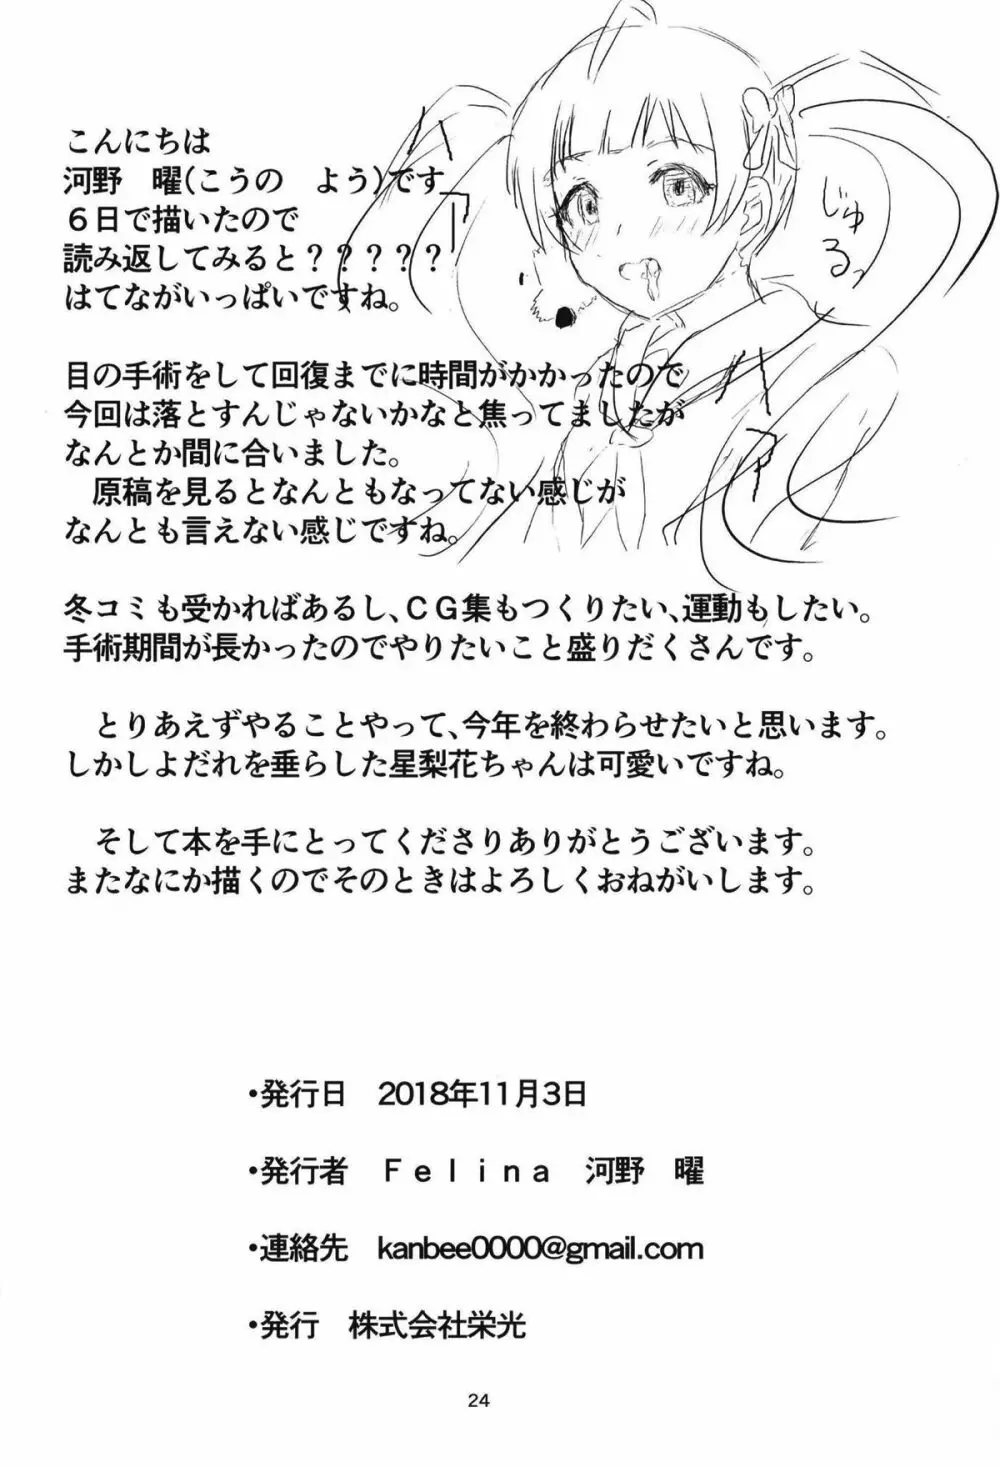 こんにちは
河野　曜(こうの　よう)です
６日で描いたので
読み返してみると？？？？？
はてながいっぱいですね。
じゅるっ
目の手術をして回復までに時間がかかったので
今回は落とすんじゃないかなと焦ってましたが
なんとか間に合いました。
　原稿を見るとなんともなってない感じが
なんとも言えない感じですね。
ハァ
ハァ
冬コミも受かればあるし、ＣＧ集もつくりたい、運動もしたい。
手術期間が長かったのでやりたいこと盛りだくさんです。
　とりあえずやることやって、今年を終わらせたいと思います。
しかしよだれを垂らした星梨花ちゃんは可愛いですね。
　そして本を手にとってくださりありがとうございます。
またなにか描くのでそのときはよろしくおねがいします。
・発行日　2018年11月3日
・発行者　Ｆｅｌｉｎａ　河野　曜
・連絡先　kanbee0000@gmail.com
・発行　株式会社栄光
24